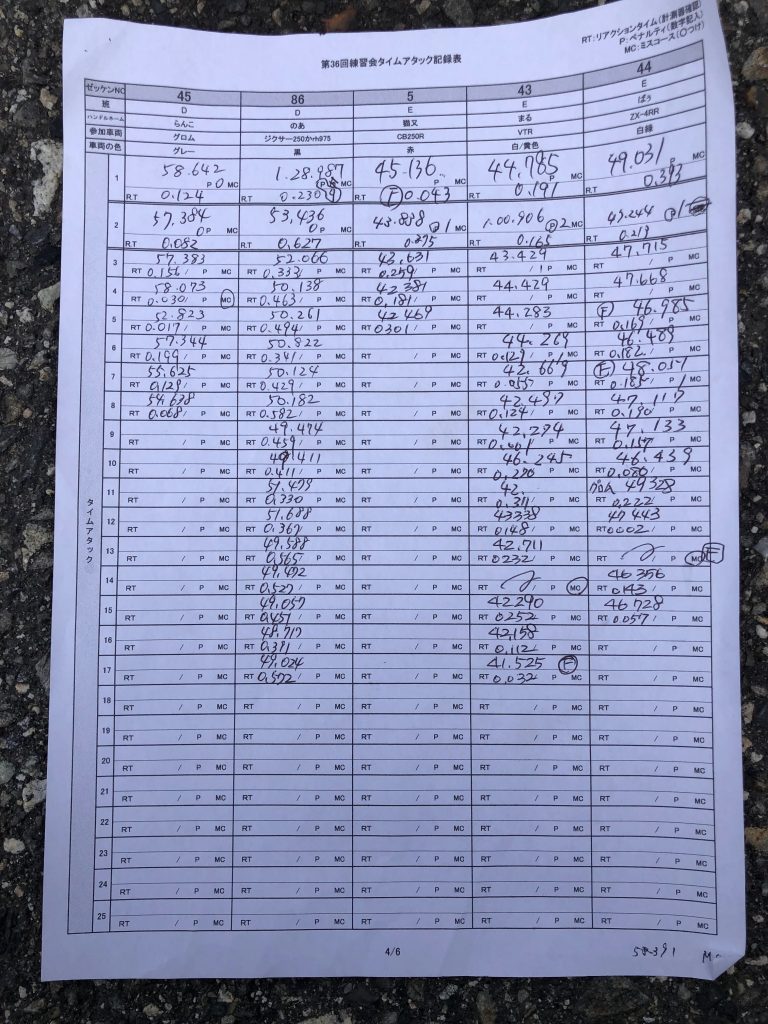 RT:リアクションタイム(計測器確認)
P:ペナルティ(数字記入)
MC:ミスコース(○つけ)
第36回練習会タイムアタック記録表
ゼッケンNO 45 86 5 43 44
班 D D E E E
ハンドルネーム らんこ のあ 猫又 まる ぱう
参加車両 グロム ジクサー250かvh975 CB250R VTR ZX-4RR
車両の色 グレー 黒 赤 白/黄色 白緑
タイムアタック
1 58.642 1.28.987 45.136 44.785 49.031
P 0 MC P MC MC P MC P MC
RT 0.124 RT 0.230 F 0.043 RT 0.191 RT 0.393
2 57.384 53.436 43.838 P 1 1.00.906 P 2 MC 43.244 P 1
0P MC 0P MC MC
RT 0.082 RT 0.627 RT 0.375 RT 0.165 RT 0.213
3 57.383 52.066 43.631 43.429 47.715
RT 0.156/ P MC RT 0.333/ P MC RT 0.259 P MC RT / P MC RT / P MC
4 58.073 50.138 42.381 44.429 47.668
RT 0.030/ P MC RT 0.463/ P MC RT 0.181/ P MC RT / P MC RT / P MC
5 52.823 50.261 42.469 44.283 F 46.985
RT 0.017/ P MC RT 0.494/ P MC RT 0301/ P MC RT / P MC RT 0.169/ P MC
6 57.344 50.822 44.269 46.489
RT 0.199/ P MC RT 0.341/ P MC RT / P MC RT 0.129/ P MC RT 0.182/ P MC
7 55.625 50.124 42.669 F 48.037
RT 0.129/ P MC RT 0.429/ P MC RT / P MC RT 0.055/ P MC RT 0.185/ P MC
8 54.638 50.182 42.497 47.117
RT 0.068/ P MC RT 0.582/ P MC RT / P MC RT 0.124/ P MC RT 0.190/ P MC
9 49.474 42.294 47.133
RT / P MC RT 0.459/ P MC RT / P MC RT 0.001/ P MC RT 0.157/ P MC
10 49.411 46.245 46.439
RT / P MC RT 0.411/ P MC RT / P MC RT 0.296/ P MC RT 0.080/ P MC
11 51.479 42. グロム 49328
RT / P MC RT 0.330/ P MC RT / P MC RT 0.311/ P MC RT 0.222/ P MC
12 51.688 43338 47443
RT / P MC RT 0.367/ P MC RT / P MC RT 0.148/ P MC RT 0.002/ P MC
13 49.588 42.711
RT / P MC RT 0.565/ P MC RT / P MC RT 0232/ P MC RT P MC F
14 49.492 46356
RT / P MC RT 0.527/ P MC RT / P MC RT P MC RT 0143/ P MC
15 49.057 42290 46728
RT / P MC RT 0.451/ P MC RT / P MC RT 0252/ P MC RT 0.057/ P MC
16 48.717 42,158
RT / P MC RT 0.391/ P MC RT / P MC RT 0.112/ P MC RT / P MC
17 49.024 41.525 F
RT / P MC RT 0.572/ P MC RT / P MC RT 0.032/ P MC RT / P MC
18
RT / P MC RT / P MC RT / P MC RT / P MC RT / P MC
19
RT / P MC RT / P MC RT / P MC RT / P MC RT / P MC
20
RT / P MC RT / P MC RT / P MC RT / P MC RT / P MC
21
RT / P MC RT / P MC RT / P MC RT / P MC RT / P MC
22
RT / P MC RT / P MC RT / P MC RT / P MC RT / P MC
23
RT / P MC RT / P MC RT / P MC RT / P MC RT / P MC
24
RT / P MC RT / P MC RT / P MC RT / P MC RT / P MC
25
RT / P MC RT / P MC RT / P MC RT / P MC RT / P MC
4/6
58.391